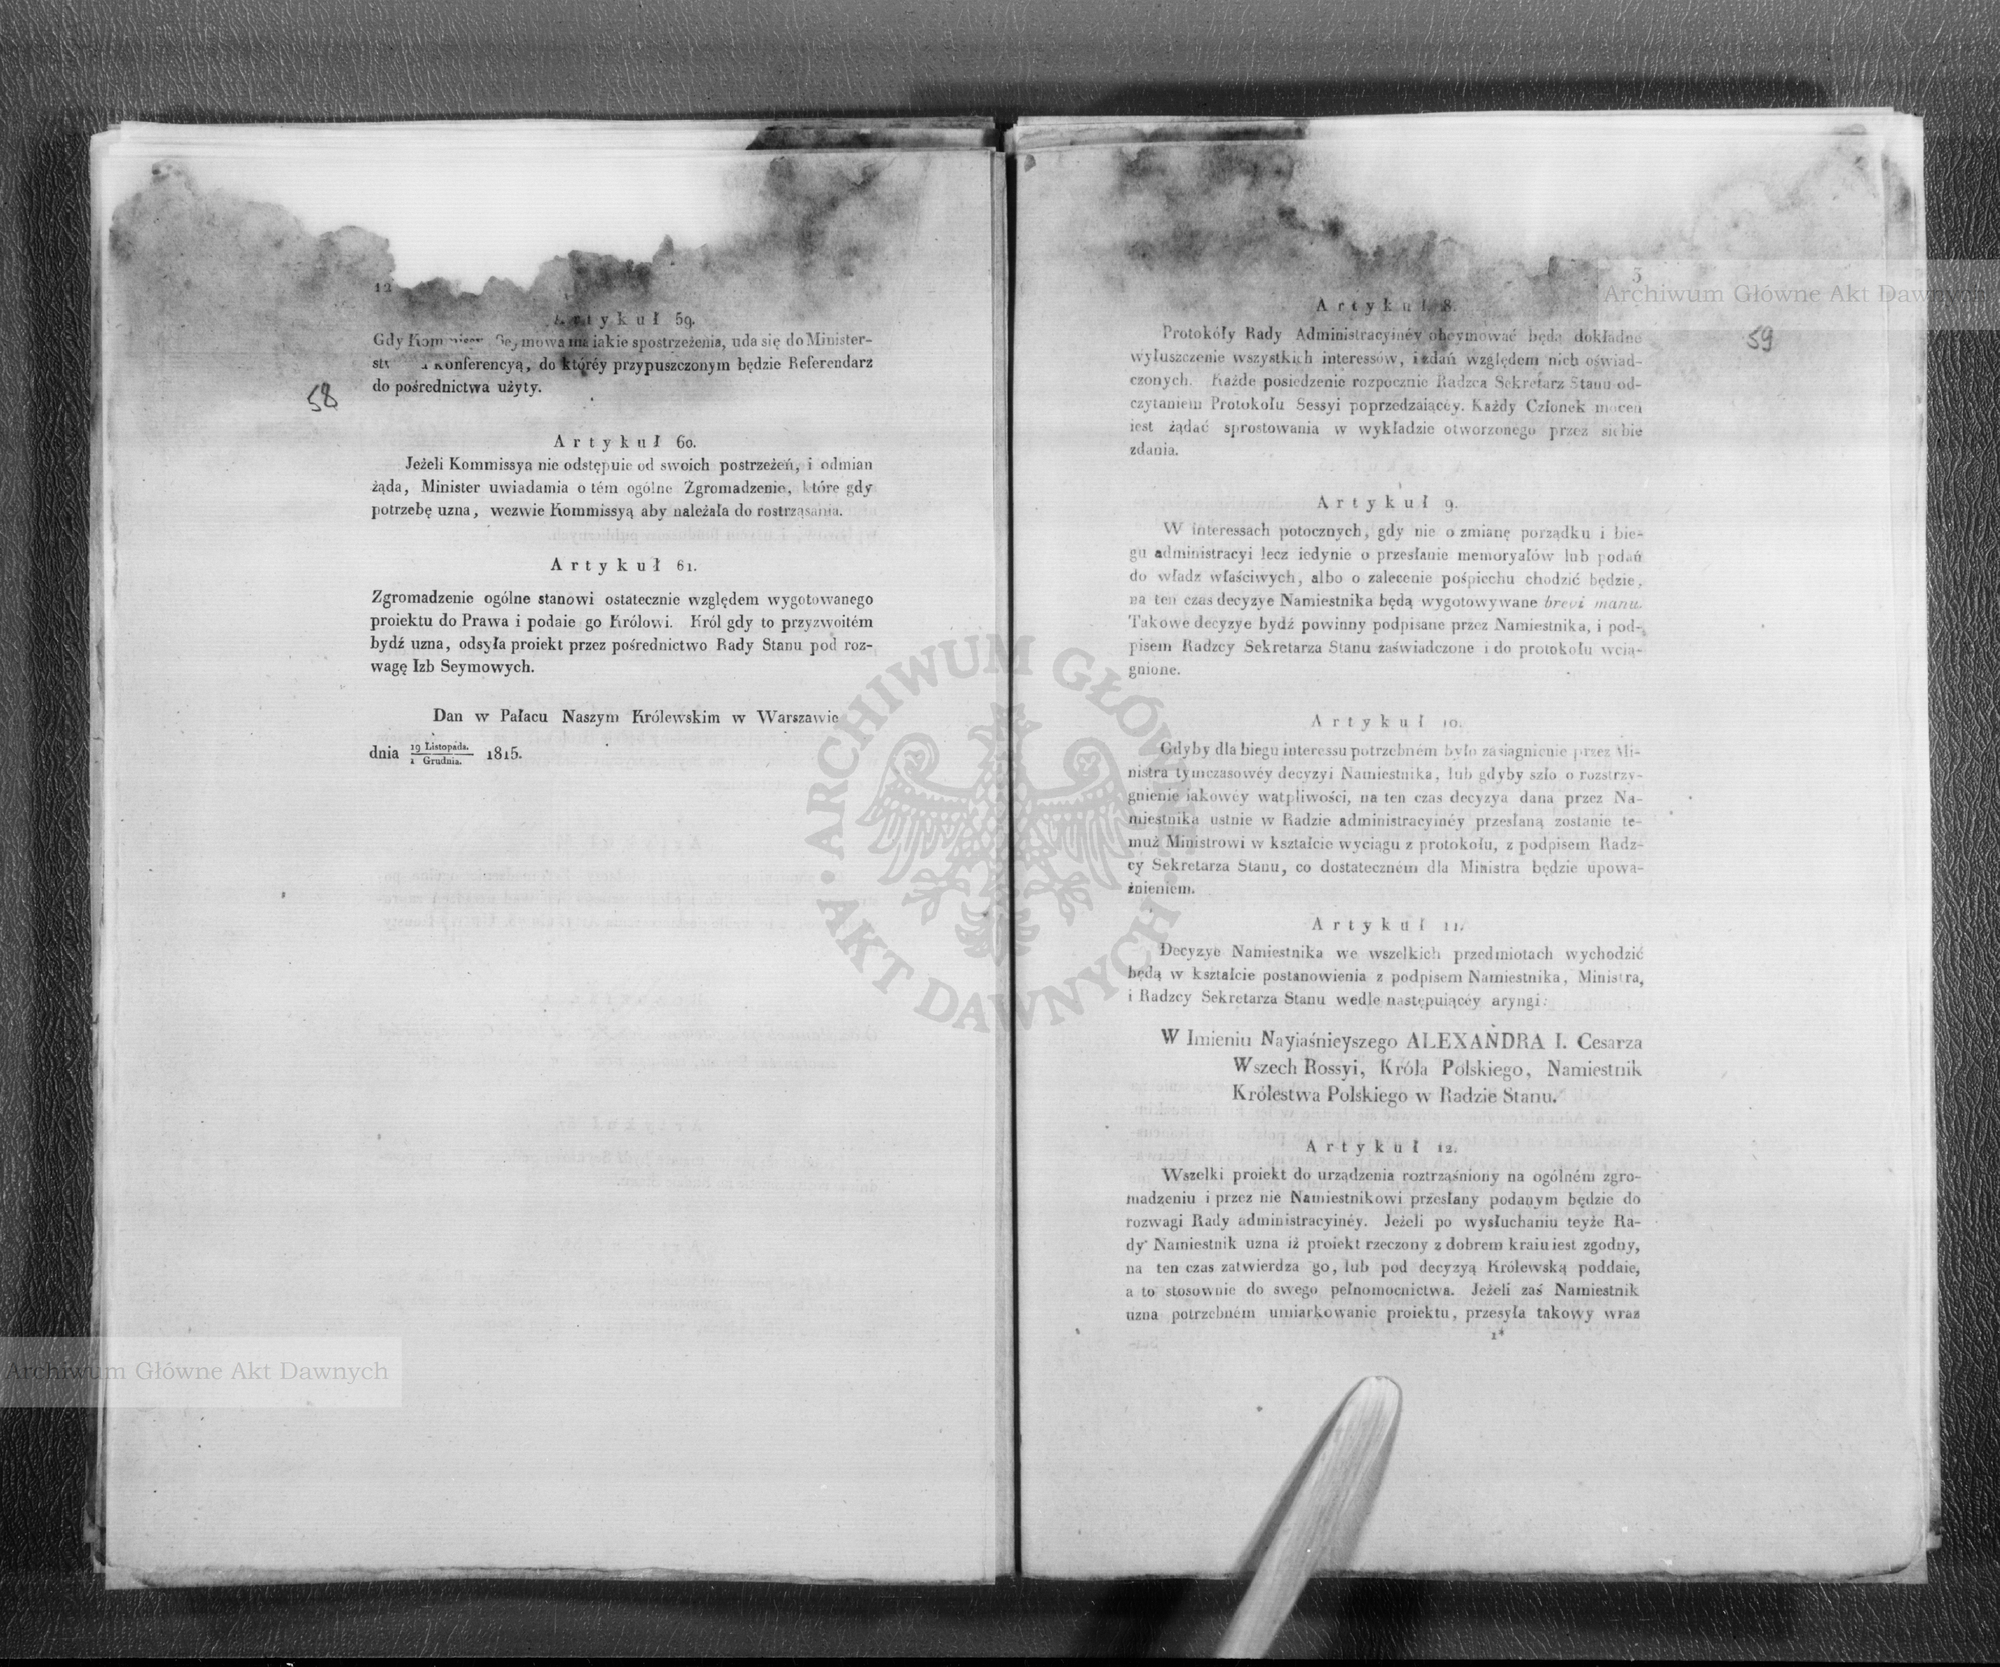 12
Artykuł 59.
Gdy Seymowa ma iakie spostrzeżenia, uda się do Minister-
konferencyą, do któréy przypuszczonym będzie Referendarz
do pośrednictwa użyty.
58
Artykuł 60.
Jeżeli Kommissya nie odstępuie od swoich postrzeżeń, i odmian
żąda, Minister uwiadamia o tém ogólne Zgromadzenie, które gdy
potrzebę uzna, wezwie Kommissyą aby należała do rostrząsania.
Artykuł 61.
Zgromadzenie ogólne stanowi ostatecznie względem wygotowanego
proiektu do Prawa i podaie go Królowi. Król gdy to przyzwoitém
bydź uzna, odsyła proiekt przez pośrednictwo Rady Stanu pod roz-
wagę Izb Seymowych.
Dan w Pałacu Naszym Królewskim w Warszawie
dnia 19 Listopada. / 1 Grudnia. 1815.
3
59
Artykuł 8.
Protokóły Rady Administracyinéy obeymować będą dokładne
wyłuszczenie wszystkich interessów, i zdań względem nich oświad-
czonych. Każde posiedzenie rozpocznie Radzca Sekretarz Stanu od-
czytaniem Protokołu Sessyi poprzedzaiącéy. Każdy Członek mocen
iest żądać sprostowania w wykładzie otworzonego przez siebie
zdania.
Artykuł 9.
W interessach potocznych, gdy nie o zmianę porządku i bie-
gu administracyi lecz iedynie o przesłanie memoryałów lub podań
do władz właściwych, albo o zalecenie pośpiechu chodzić będzie,
na ten czas decyzye Namiestnika będą wygotowywane brevi manu.
Takowe decyzye bydź powinny podpisane przez Namiestnika, i pod-
pisem Radzcy Sekretarza Stanu zaświadczone i do protokołu wcią-
gnione.
Artykuł 10.
Gdyby dla biegu interessu potrzebném było zasiągnienie przez Mi-
nistra tymczasowéy decyzyi Namiestnika, lub gdyby szło o rozstrzy-
gnienie iakowéy wątpliwości, na ten czas decyzya dana przez Na-
miestnika ustnie w Radzie administracyinéy przesłaną zostanie te-
muż Ministrowi w kształcie wyciągu z protokołu, z podpisem Radz-
cy Sekretarza Stanu, co dostateczném dla Ministra będzie upowa-
żnieniem.
Artykuł 11.
Decyzye Namiestnika we wszelkich przedmiotach wychodzić
będą w kształcie postanowienia z podpisem Namiestnika, Ministra,
i Radzcy Sekretarza Stanu wedle następuiącéy aryngi:
W Imieniu Nayiaśnieyszego ALEXANDRA I. Cesarza
Wszech Rossyi, Króla Polskiego, Namiestnik
Królestwa Polskiego w Radzie Stanu.
Artykuł 12.
Wszelki proiekt do urządzenia roztrząśniony na ogólném zgro-
madzeniu i przez nie Namiestnikowi przesłany podanym będzie do
rozwagi Rady administracyinéy. Jeżeli po wysłuchaniu teyże Ra-
dy Namiestnik uzna iż proiekt rzeczony z dobrem kraiu iest zgodny,
na ten czas zatwierdza go, lub pod decyzyą Królewską poddaie,
a to stosownie do swego pełnomocnictwa. Jeżeli zaś Namiestnik
uzna potrzebném umiarkowanie proiektu, przesyła takowy wraz
1*
Archiwum Główne Akt Dawnych
Archiwum Główne Akt Dawnych
ARCHIWUM GŁÓWNE • AKT DAWNYCH •